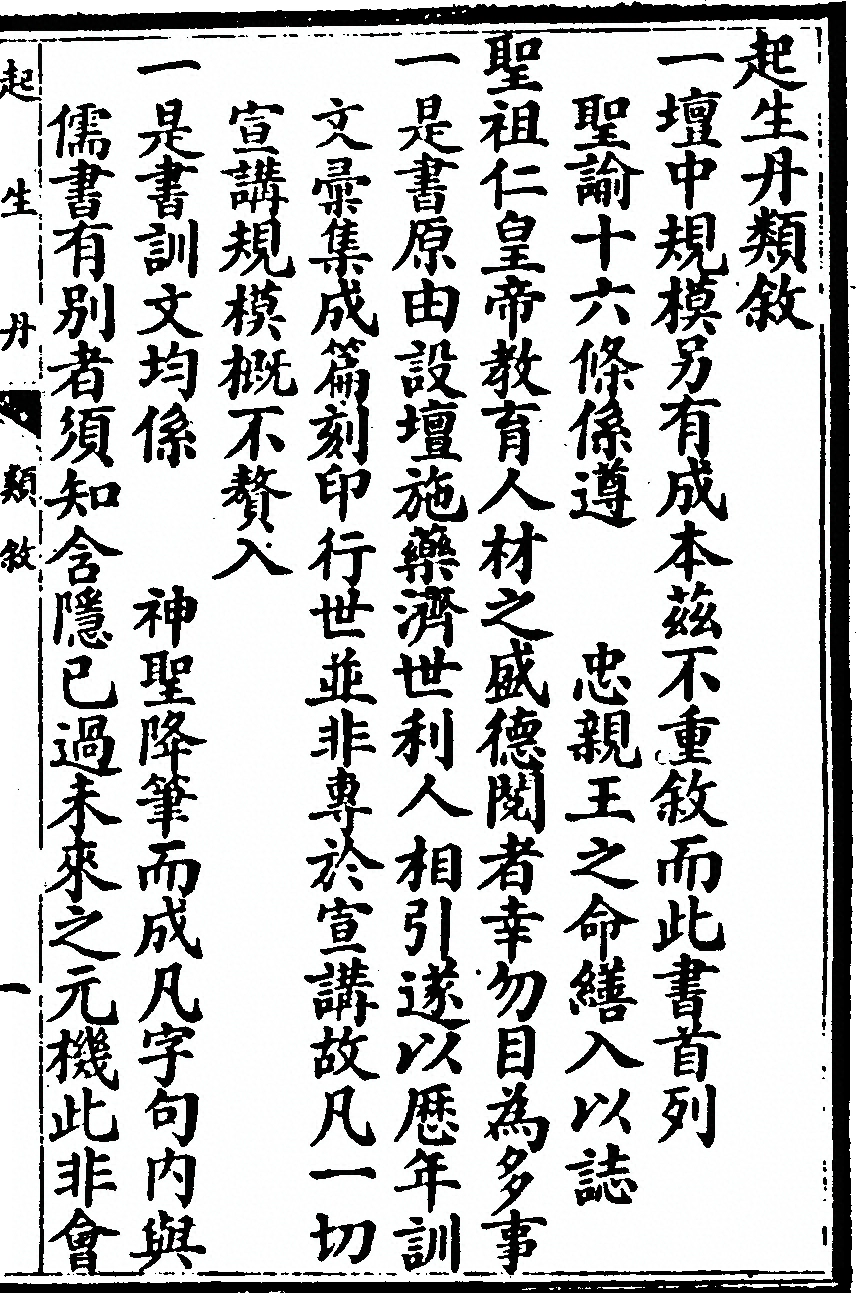 起生丹類敘
一壇中規模另有成本茲不重敘而此書首列
聖諭十六條係遵　忠親王之命繕入以誌
聖祖仁皇帝教育人材之盛德閱者幸勿目為多事
一是書原由設壇施藥濟世利人相引遂以歷年訓
文彙集成篇刻印行世並非專於宣講故凡一切
宣講規模概不贅入
一是書訓文均係　神聖降筆而成凡字句內與
儒書有別者須知含隱已過未來之元機此非會
起生丹　類敘　一